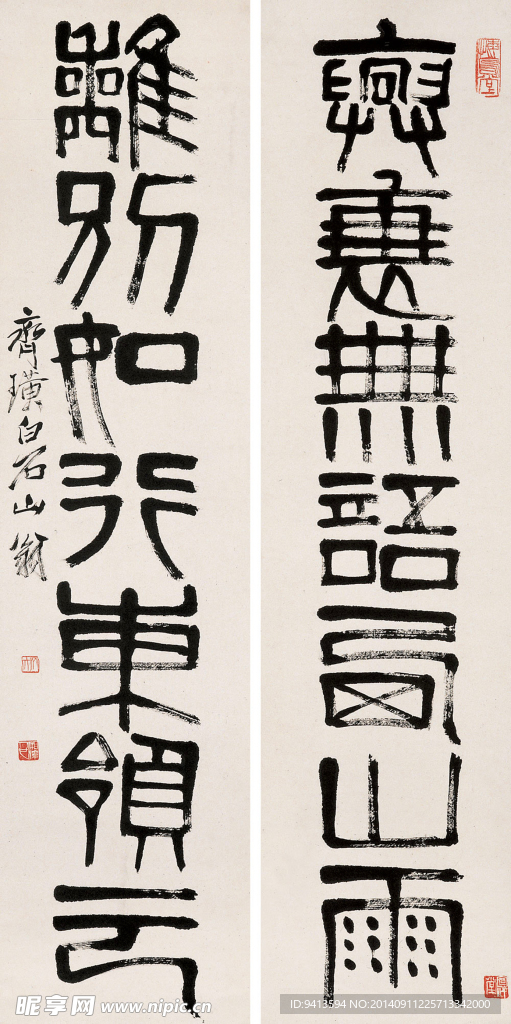 興衰無語西山雨
離別如行東領云
齊璜白石山翁
昵享网 www.nipic.cn
ID:9413594 NO:20140911225713342000